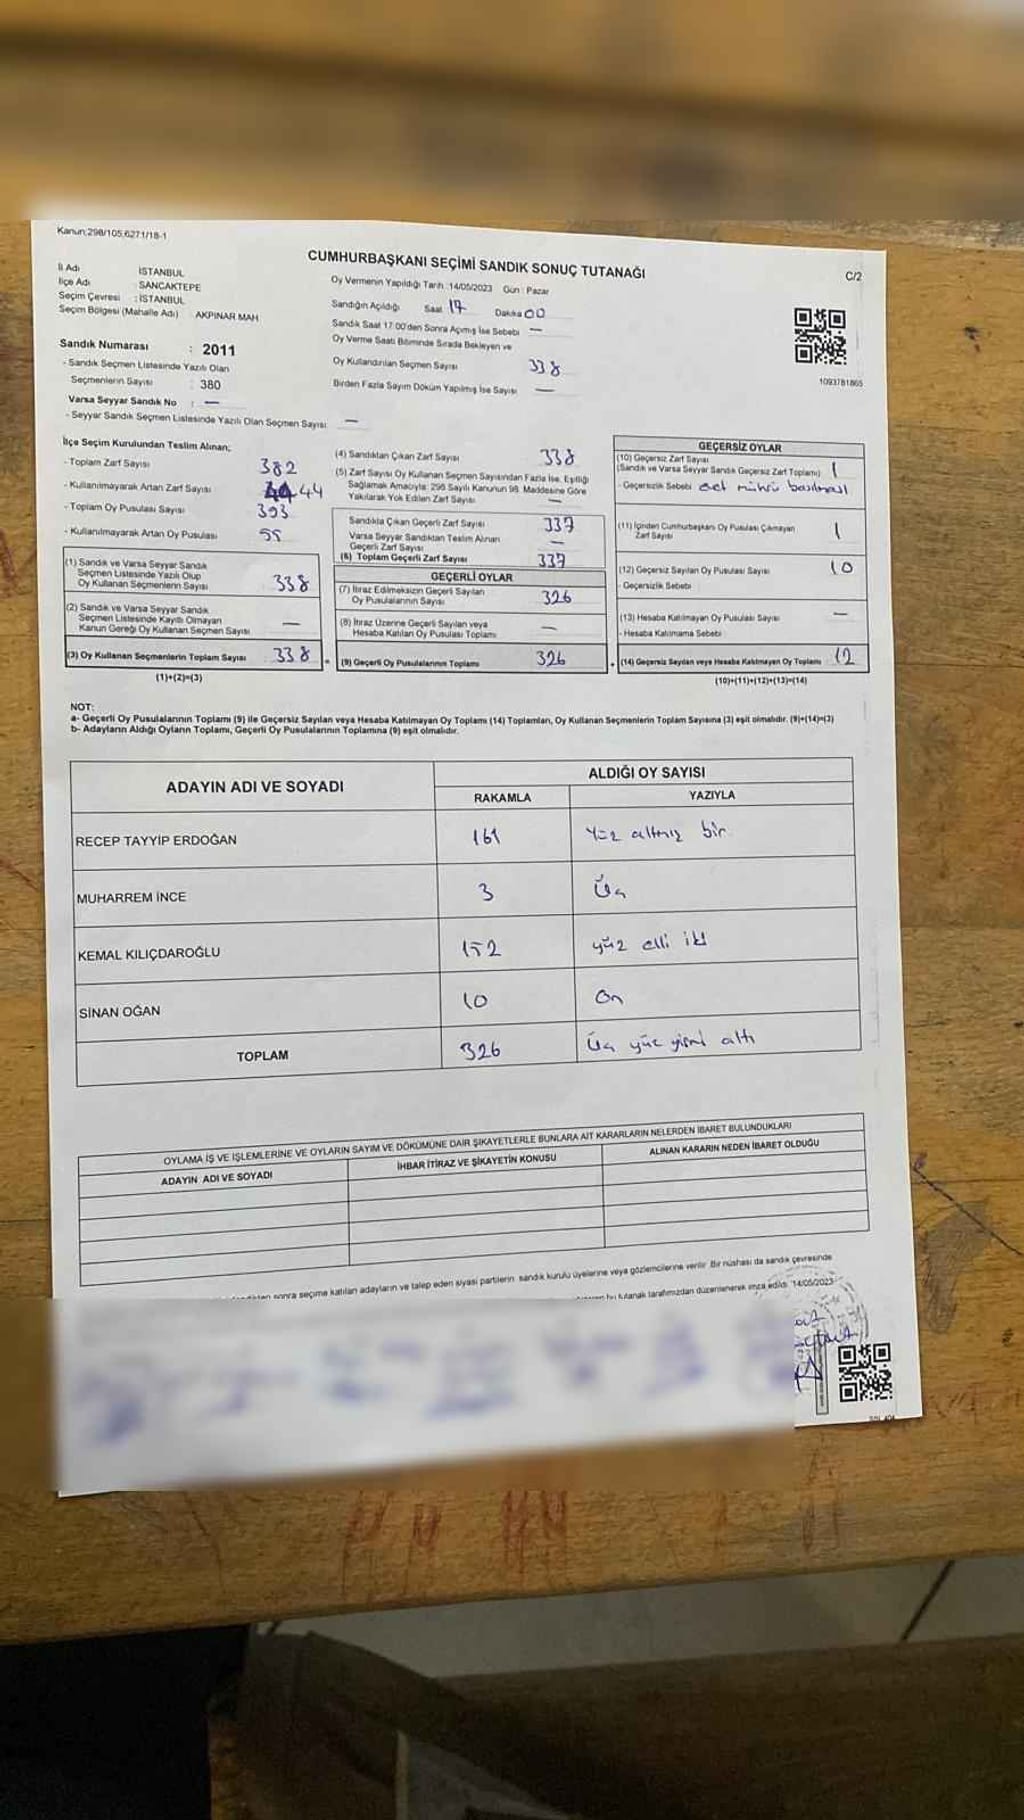 Kanun;298/105,6271/18-1
CUMHURBAŞKANI SEÇİMİ SANDIK SONUÇ TUTANAĞI
C/2
İl Adı İSTANBUL
İlçe Adı : SANCAKTEPE
Seçim Çevresi : İSTANBUL
Seçim Bölgesi (Mahalle Adı) : AKPINAR MAH
Sandık Numarası : 2011
- Sandık Seçmen Listesinde Yazılı Olan
Seçmenlerin Sayısı : 380
Varsa Seyyar Sandık No : —
- Seyyar Sandık Seçmen Listesinde Yazılı Olan Seçmen Sayısı: —
Oy Vermenin Yapıldığı Tarih :14/05/2023 Gün : Pazar
Sandığın Açıldığı Saat 17 Dakika 00
Sandık Saat 17:00'den Sonra Açılmış İse Sebebi —
Oy Verme Saati Bitiminde Sırada Bekleyen ve
Oy Kullandırılan Seçmen Sayısı 338
Birden Fazla Sayım Döküm Yapılmış İse Sayısı —
1093781865
İlçe Seçim Kurulundan Teslim Alınan;
- Toplam Zarf Sayısı 382
- Kullanılmayarak Artan Zarf Sayısı 44
- Toplam Oy Pusulası Sayısı 393
- Kullanılmayarak Artan Oy Pusulası 55
(1) Sandık ve Varsa Seyyar Sandık
Seçmen Listesinde Yazılı Olup
Oy Kullanan Seçmenlerin Sayısı 338
(2) Sandık ve Varsa Seyyar Sandık
Seçmen Listesinde Kayıtlı Olmayan
Kanun Gereği Oy Kullanan Seçmen Sayısı —
(3) Oy Kullanan Seçmenlerin Toplam Sayısı 338
(1)+(2)=(3)
(4) Sandıktan Çıkan Zarf Sayısı 338
(5) Zarf Sayısı Oy Kullanan Seçmen Sayısından Fazla İse, Eşitliği
Sağlamak Amacıyla; 298 Sayılı Kanunun 98. Maddesine Göre
Yakılarak Yok Edilen Zarf Sayısı —
Sandıkta Çıkan Geçerli Zarf Sayısı 337
Varsa Seyyar Sandıktan Teslim Alınan
Geçerli Zarf Sayısı —
(6) Toplam Geçerli Zarf Sayısı 337
GEÇERLİ OYLAR
(7) İtiraz Edilmeksizin Geçerli Sayılan
Oy Pusulalarının Sayısı 326
(8) İtiraz Üzerine Geçerli Sayılan veya
Hesaba Katılan Oy Pusulası Toplamı —
= (9) Geçerli Oy Pusulalarının Toplamı 326
GEÇERSİZ OYLAR
(10) Geçersiz Zarf Sayısı
(Sandık ve Varsa Seyyar Sandık Geçersiz Zarf Toplamı) 1
- Geçersizlik Sebebi evet mührü basılması
(11) İçinden Cumhurbaşkanı Oy Pusulası Çıkmayan
Zarf Sayısı 1
(12) Geçersiz Sayılan Oy Pusulası Sayısı 10
- Geçersizlik Sebebi
(13) Hesaba Katılmayan Oy Pusulası Sayısı —
- Hesaba Katılmama Sebebi
+ (14) Geçersiz Sayılan veya Hesaba Katılmayan Oy Toplamı 12
(10)+(11)+(12)+(13)=(14)
NOT:
a- Geçerli Oy Pusulalarının Toplamı (9) ile Geçersiz Sayılan veya Hesaba Katılmayan Oy Toplamı (14) Toplamları, Oy Kullanan Seçmenlerin Toplam Sayısına (3) eşit olmalıdır. (9)+(14)=(3)
b- Adayların Aldığı Oyların Toplamı, Geçerli Oy Pusulalarının Toplamına (9) eşit olmalıdır.
ADAYIN ADI VE SOYADI ALDIĞI OY SAYISI
RAKAMLA YAZIYLA
RECEP TAYYİP ERDOĞAN 161 Yüz altmış bir
MUHARREM İNCE 3 Üç
KEMAL KILIÇDAROĞLU 152 yüz elli iki
SİNAN OĞAN 10 On
TOPLAM 326 Üç yüz yirmi altı
OYLAMA İŞ VE İŞLEMLERİNE VE OYLARIN SAYIM VE DÖKÜMÜNE DAİR ŞİKAYETLERLE BUNLARA AİT KARARLARIN NELERDEN İBARET BULUNDUKLARI
ADAYIN ADI VE SOYADI İHBAR İTİRAZ VE ŞİKAYETİN KONUSU ALINAN KARARIN NEDEN İBARET OLDUĞU
sonra seçime katılan adayların ve talep eden siyasi partilerin sandık kurulu üyelerine veya gözlemcilerine verilir. Bir nüshası da sandık çevresinde
bu tutanak tarafımızdan düzenlenerek imza edildi. 14/05/2023